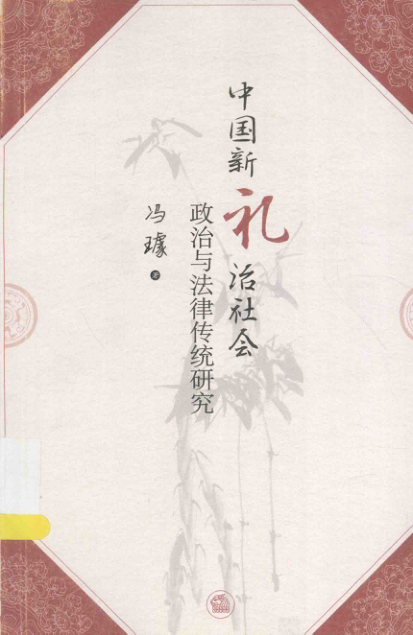 中国新礼治社会
政治与法律传统研究
冯璩 著